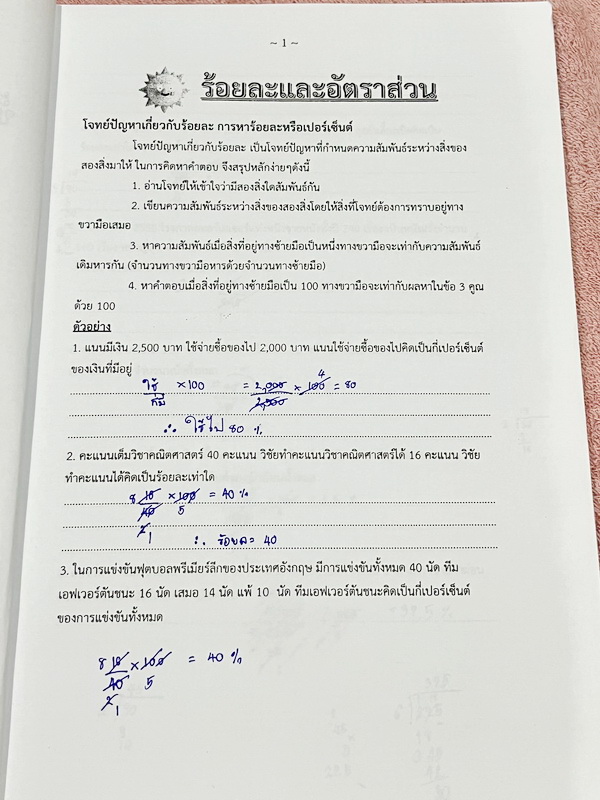 ~ 1 ~
ร้อยละและอัตราส่วน
โจทย์ปัญหาเกี่ยวกับร้อยละ การหาร้อยละหรือเปอร์เซ็นต์
โจทย์ปัญหาเกี่ยวกับร้อยละ เป็นโจทย์ปัญหาที่กำหนดความสัมพันธ์ระหว่างสิ่งของ
สองสิ่งมาให้ ในการคิดหาคำตอบ จึงสรุปหลักง่ายๆดังนี้
1. อ่านโจทย์ให้เข้าใจว่ามีสองสิ่งใดสัมพันธ์กัน
2. เขียนความสัมพันธ์ระหว่างสิ่งของสองสิ่งโดยให้สิ่งที่โจทย์ต้องการทราบอยู่ทาง
ขวามือเสมอ
3. หาความสัมพันธ์เมื่อสิ่งที่อยู่ทางซ้ายมือเป็นหนึ่งทางขวามือจะเท่ากับความสัมพันธ์
เดิมหารกัน (จำนวนทางขวามือหารด้วยจำนวนทางซ้ายมือ)
4. หาคำตอบเมื่อสิ่งที่อยู่ทางซ้ายมือเป็น 100 ทางขวามือจะเท่ากับผลหาในข้อ 3 คูณ
ด้วย 100
ตัวอย่าง
1. แนนมีเงิน 2,500 บาท ใช้จ่ายซื้อของไป 2,000 บาท แนนใช้จ่ายซื้อของไปคิดเป็นกี่เปอร์เซ็นต์
ของเงินที่มีอยู่
4
ใช้ ×100 = 2,000 × 100 = 80
ที่มี 2,500
∴ ใช้ไป 80 %
2. คะแนนเต็มวิชาคณิตศาสตร์ 40 คะแนน วิชัยทำคะแนนวิชาคณิตศาสตร์ได้ 16 คะแนน วิชัย
ทำคะแนนได้คิดเป็นร้อยละเท่าใด
8 16 × 100 = 40 %
40 5
2 1
∴ ร้อยละ 40
3. ในการแข่งขันฟุตบอลพรีเมียร์ลีกของประเทศอังกฤษ มีการแข่งขันทั้งหมด 40 นัด ทีม
เอฟเวอร์ตันชนะ 16 นัด เสมอ 14 นัด แพ้ 10 นัด ทีมเอฟเวอร์ตันชนะคิดเป็นกี่เปอร์เซ็นต์
ของการแข่งขันทั้งหมด
8 16 × 100 = 40 %
40 5
2 1